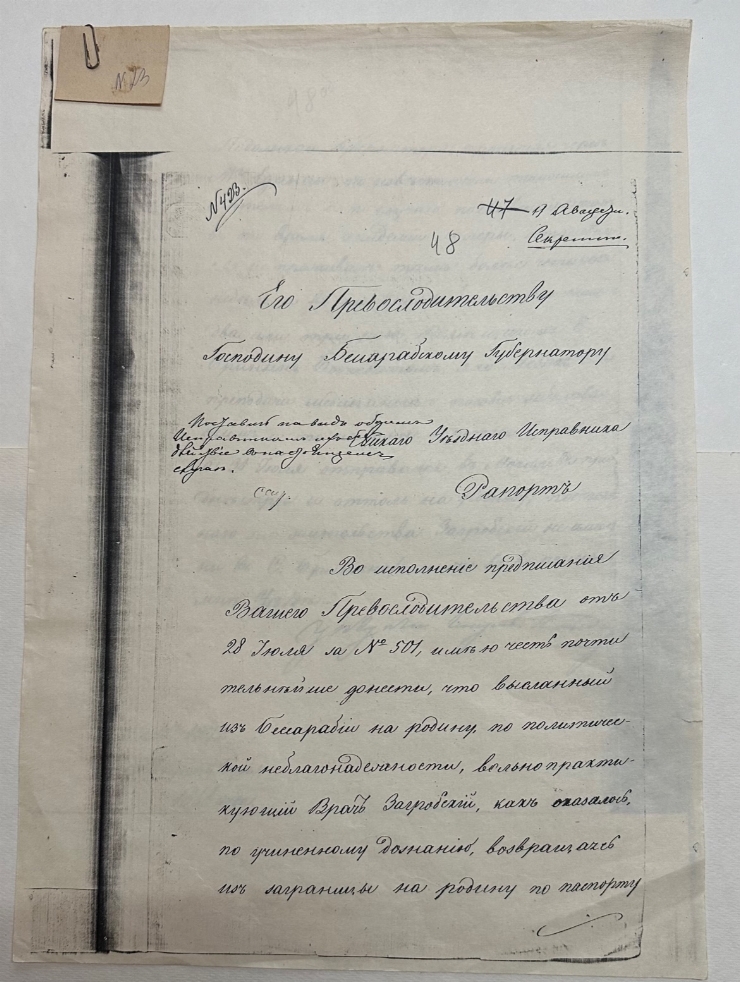 № 423.
47 17 Августа.
48 Секретно.
Его Превосходительству
Господину Бессарабскому Губернатору
Поставить на видъ
Исправникамъ
Уѣзднаго Исправника
случаѣ.
Рапортъ
Во исполненіе предписанія
Вашего Превосходительства отъ
28 Іюля за № 501, имѣю честь почти
тельнѣйше донести, что высланный
изъ Бессарабіи на родину, по политичес-
кой неблагонадежности, вольнопракти-
кующій Врачъ Загробскій, какъ оказалось,
по учиненному дознанію, возвращаясь
изъ заграницы на родину по паспорту